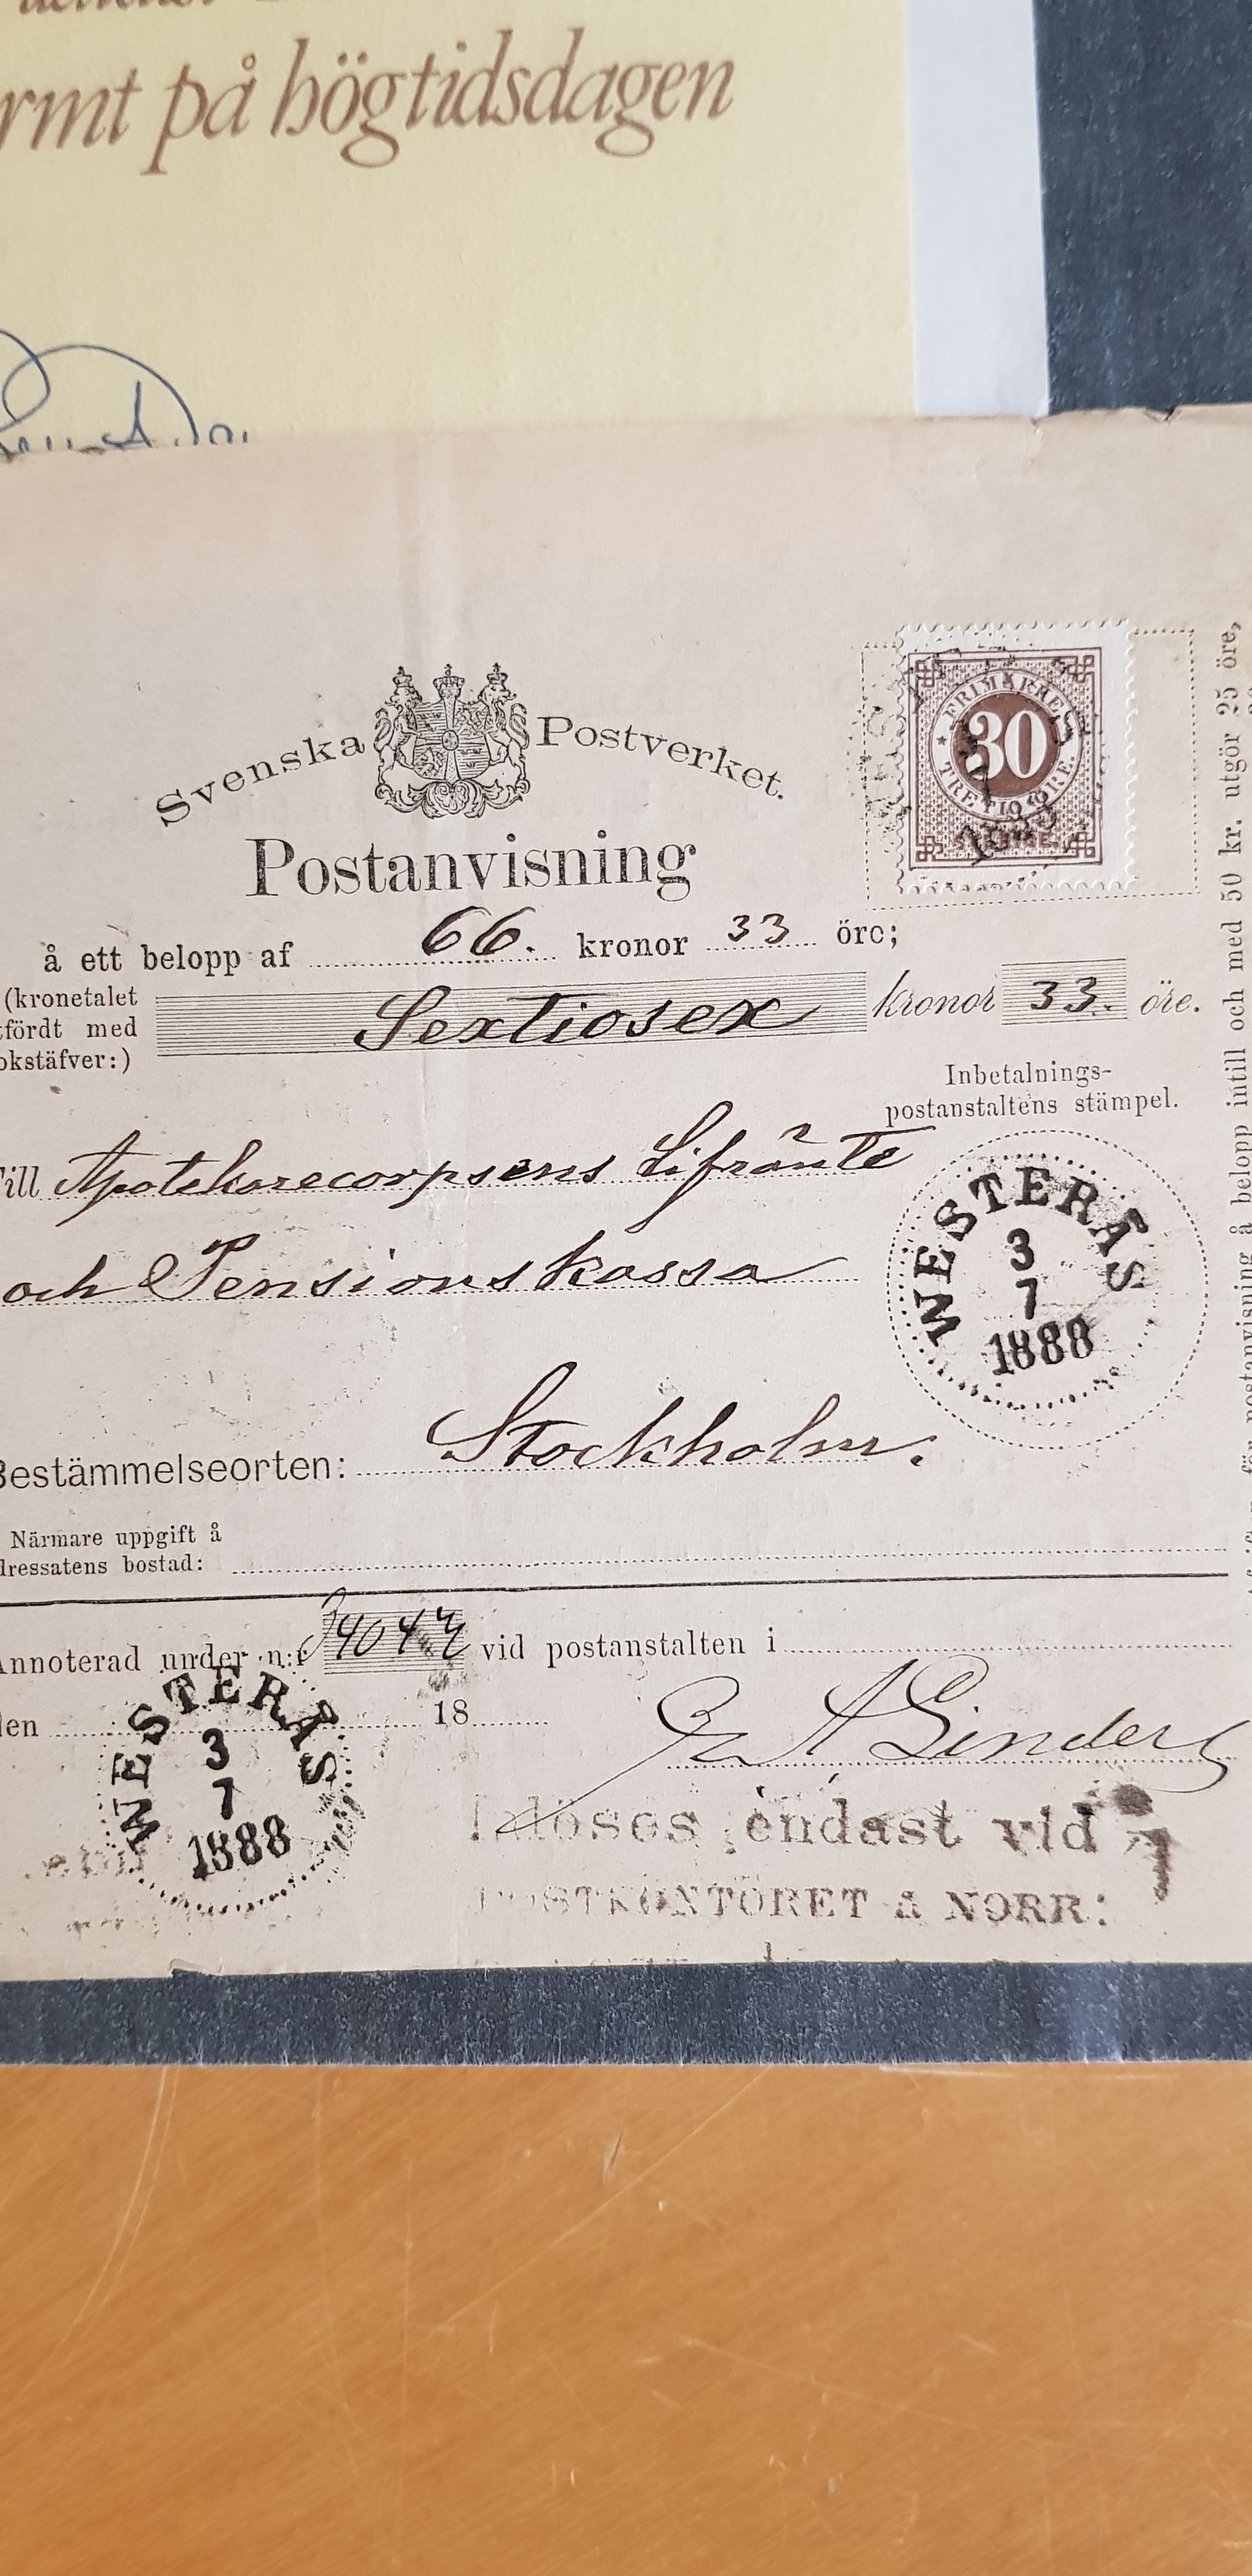 rmt på högtidsdagen
Svenska Postverket.
FRIMÄRKE
30
TRETIO ÖRE.
Postanvisning
å ett belopp af 66. kronor 33 öre;
(kronetalet
tfördt med
okstäfver:)
Sextiosex kronor 33. öre.
Inbetalnings-
postanstaltens stämpel.
Till Apotekarecorpsens Lifränte
och Pensionskassa
WESTERÅS
3
7
1888
Bestämmelseorten: Stockholm.
Närmare uppgift å
dressatens bostad:
Annoterad under n:r vid postanstalten i
den 18
WESTERÅS
3
7
1888
Inlöses endast vid
POSTKONTORET å NORR:
å belopp intill och med 50 kr. utgör 25 öre,